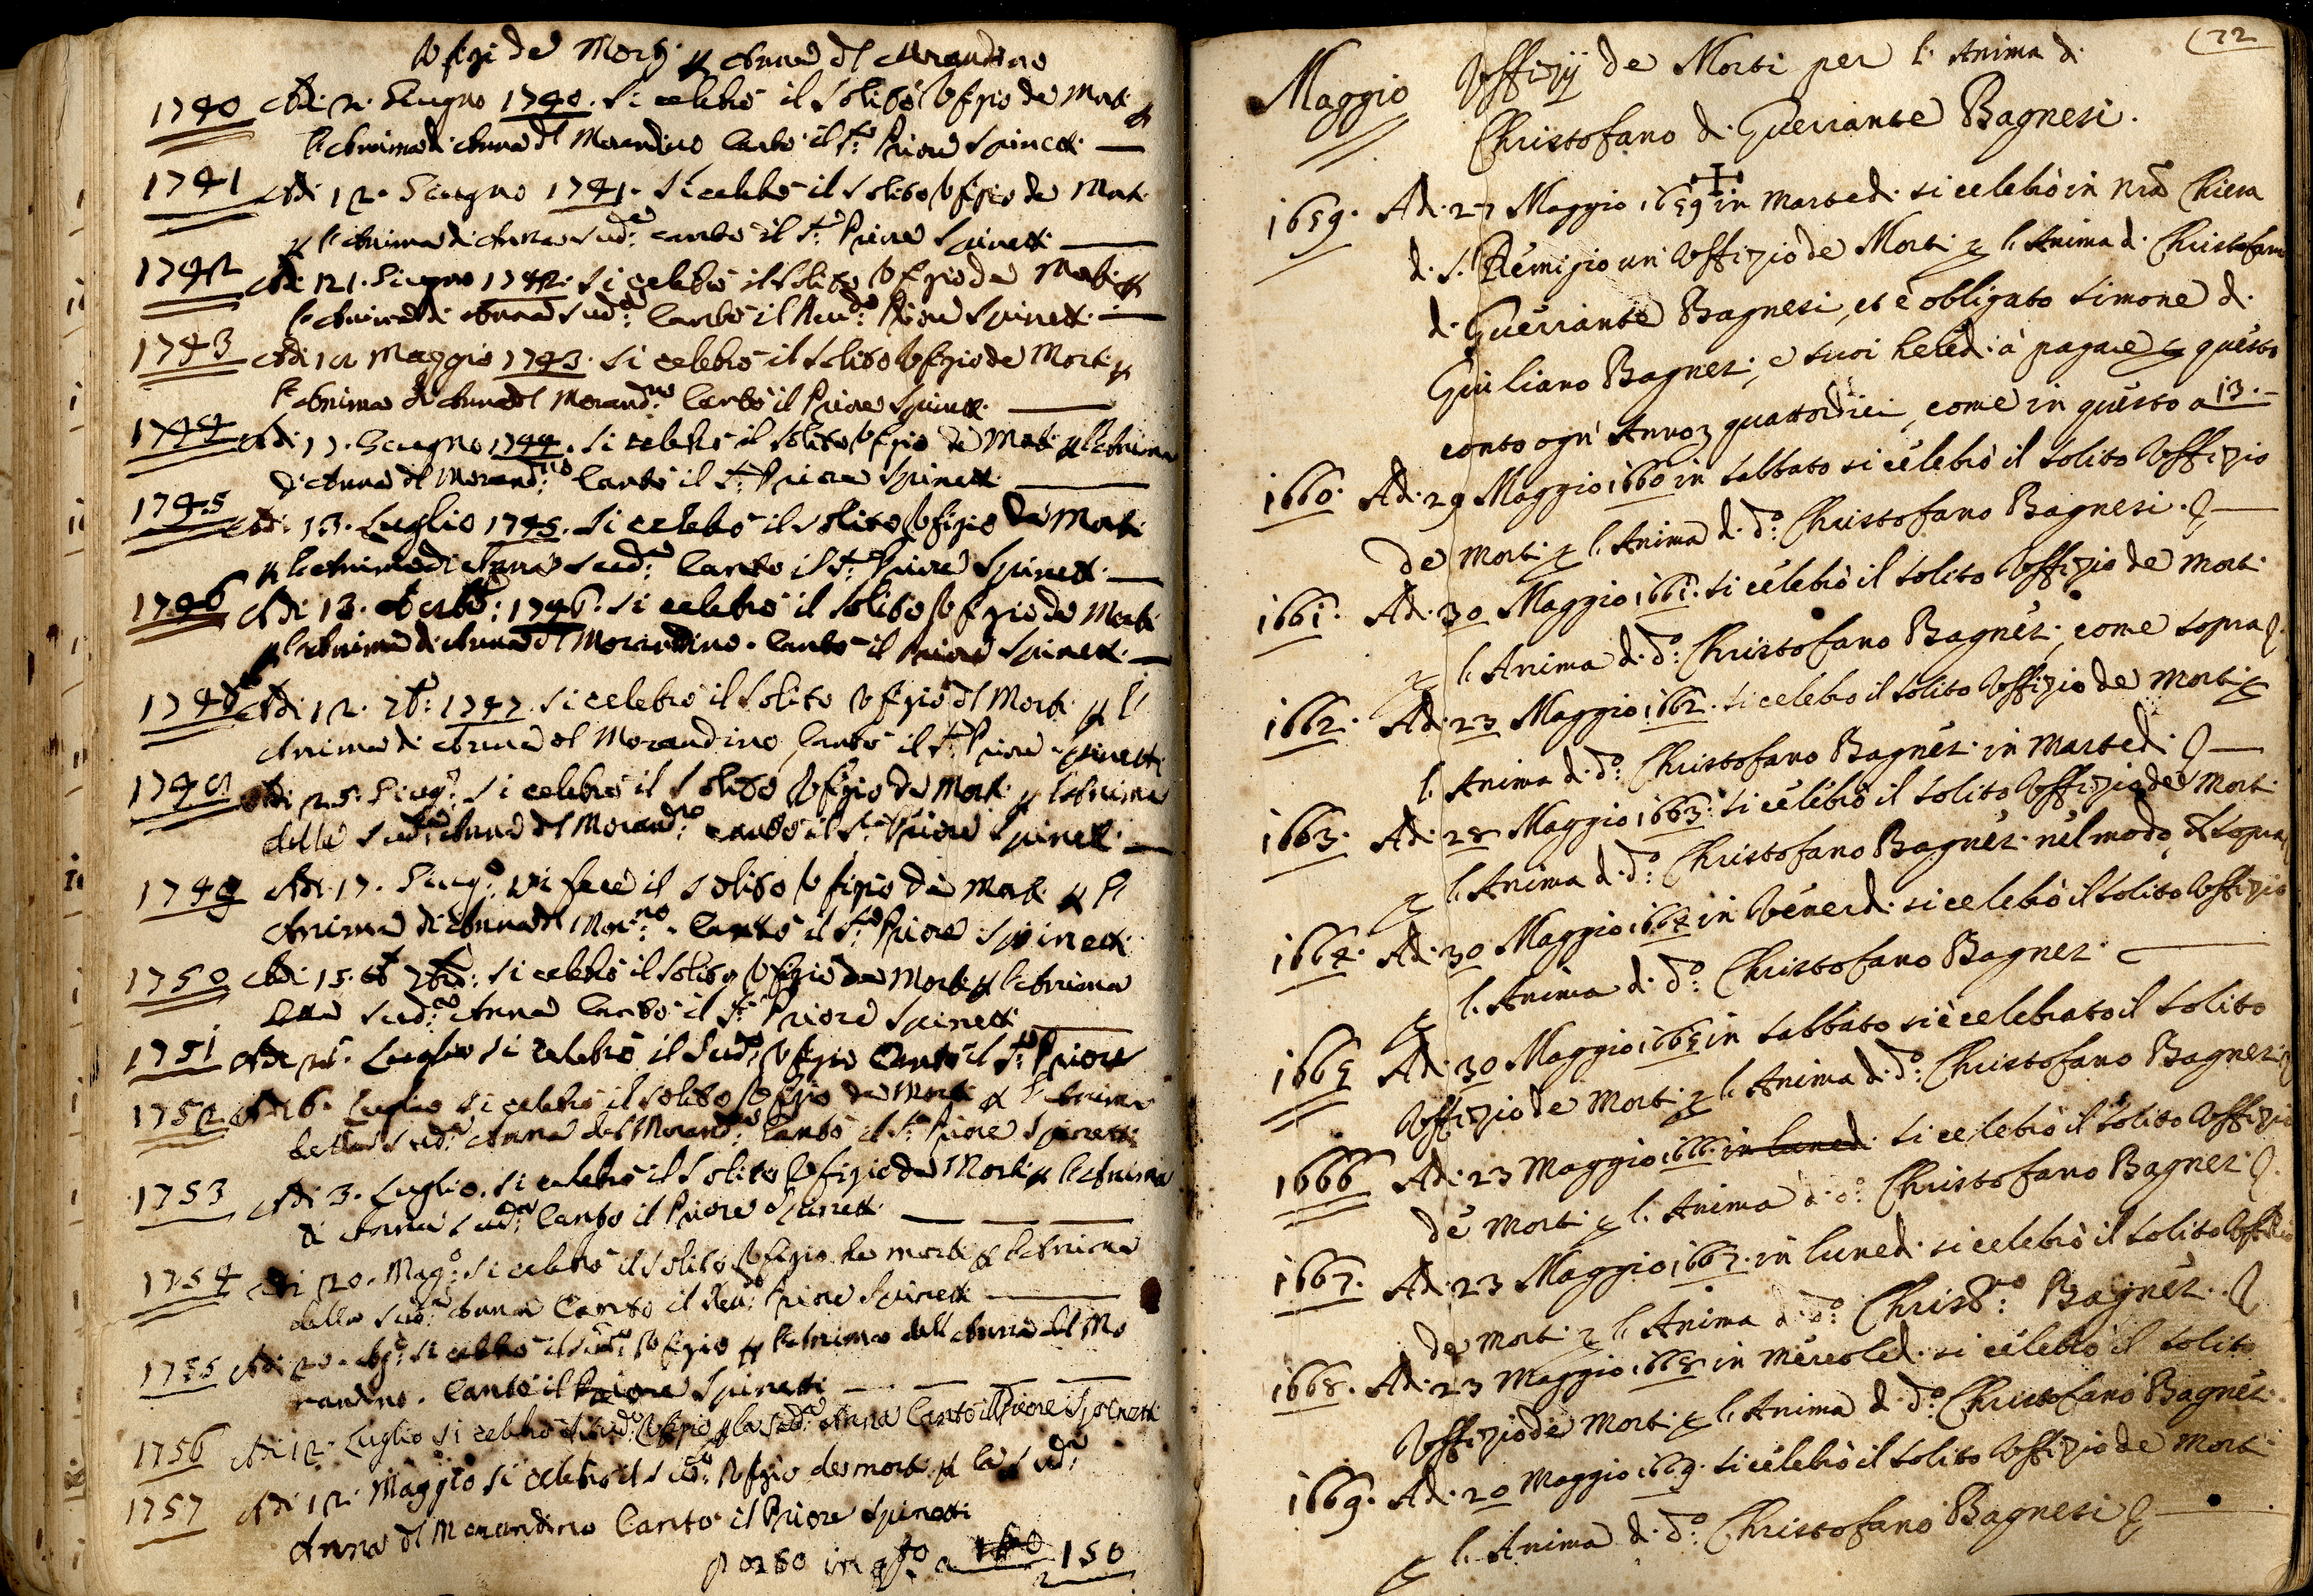 Vfizi de Morti p Anna del Morandino
1740 Adi 12. Giugno 1740. Si celebrò il Solito Vfizio de Morti p
l'Anima di Anna del Morandino Cantò il Sr: Priore Spinetti
1741 Adi 12. Giugno 1741. Si celebrò il Solito Vfizio de Morti
p l'Anima di Anna Sudª: cantò il Sr: Priore Spinetti
1742 Adi 21. Giugno 1742. Si celebrò il Solito Vfizio de Morti p
l'Anima di Anna Sudª: Cantò il Reudo: Priore Spinetti
1743 Adi Maggio 1743. Si celebrò il Solito Vfizio de Morti p
l'Anima di Anna del Morandno: Cantò il Priore Spinetti
1744 Adi 17. Giugno 1744. Si celebrò il Solito Vfizio de Morti p l'Anima
di Anna del Morandno: Cantò il Sr: Priore Spinetti
1745 Adi 13. Luglio 1745. Si celebrò il Solito Vfizio de Morti
p l'Anima di Anna Sudª: Cantò il Sr: Priore Spinetti
1746 Adi 13. 1746. Si celebrò il Solito Vfizio de Morti
p l'Anima di Anna del Morandino. Cantò il Priore Spinetti
Adi 12. 7bre: 1747. Si celebrò il Solito Vfizio de Morti p l'
Anima di Anna del Morandino, Cantò il Sr: Priore Spinetti
Adi 25. Giugo: Si celebrò il Solito Vfizio de Morti p l'Anima
della Sudª: Anna del Morandno: cantò il Sr: Priore Spinetti
1749 Adi 17. Giugo: Si fece il Solito Vfizio de Morti p l'
Anima di Anna del Morno: Cantò il Sr: Priore Spinetti
1750 Adi 15. 7bre: Si celebrò il Solito Vfizio de Morti p l'Anima
della Sudª: Anna Cantò il Sr: Priore Spinetti
1751 Adi Luglio Si celebrò il Sudo: Vfizio Cantò il Sr: Priore
1752 Adi 6. Luglio Si celebrò il Solito Vfizio de Morti p l'Anima
della Sudª: Anna del Morandno: Cantò il Sr: Priore Spinetti
1753 Adi 3. Luglio. Si celebrò il Solito Vfizio de Morti p l'Anima
di Anna Sudª: Cantò il Priore Spinetti
1754 Adi 20. Mago: Si celebrò il Solito Vfizio de morti p l'Anima
della Sudª: Anna Cantò il Reudo: Priore Spinetti
1755 Adi 20. Si celebrò il Sudo: Vfizio p l'Anima dell Anna del Mo
randino. Cantò il Priore Spinetti
1756 Adi 12. Luglio Si celebrò il Sudo: Vfizio p la Sudª: Anna Cantò il Priore Spinetti
1757 Adi 12. Maggio Si celebrò il Sudo: Vfizio de morti p la Sudª:
Anna del Morandino Cantò il Priore Spinetti
in qsto a 150
72
Maggio Vffizij de Morti per l'Anima di
Christofano di Guerrante Bagnesi.
1659. Adi 27 Maggio 1659 in Martedi si celebrò in nra Chiesa
di S. Remigio un Vffizio de Morti p l'Anima di Christofano
di Guerrante Bagnesi, et è obligato Simone di
Giuliano Bagnesi, e suoi heredi à pagare p questo
conto ogn'Anno quattordici, come in questo a 13.
1660. Adi 29 Maggio 1660 in Sabbato si celebrò il solito Vffizio
de Morti p l'Anima di do: Christofano Bagnesi.
1661. Adi 30 Maggio 1661. si celebrò il solito Vffizio de Morti
p l'Anima di do: Christofano Bagnesi, come sopra.
1662. Adi 23 Maggio 1662. si celebrò il solito Vffizio de Morti p
l'Anima di do: Christofano Bagnesi in Martedi.
1663. Adi 28 Maggio 1663. si celebrò il solito Vffizio de Morti
p l'Anima di do: Christofano Bagnesi nel modo, di sopra
1664. Adi 30 Maggio 1664 in Venerdi si celebrò il solito Vffizio
p l'Anima di do: Christofano Bagnesi.
1665 Adi 30 Maggio 1665 in Sabbato si è celebrato il solito
Vffizio de Morti p l'Anima di do: Christofano Bagnesi
1666 Adi 23 Maggio 1666. in lunedi si celebrò il solito Vffizio
de Morti p l'Anima di do: Christofano Bagnesi.
1667. Adi 23 Maggio 1667. in lunedi si celebrò il solito Vffizio
de Morti p l'Anima di do: Christno: Bagnesi.
1668. Adi 23 Maggio 1668 in Mercoledi si celebrò il solito
Vffizio de Morti p l'Anima di do: Christofano Bagnesi
1669. Adi 20 Maggio 1669. si celebrò il solito Vffizio de Morti
p l'Anima di do: Christofano Bagnesi